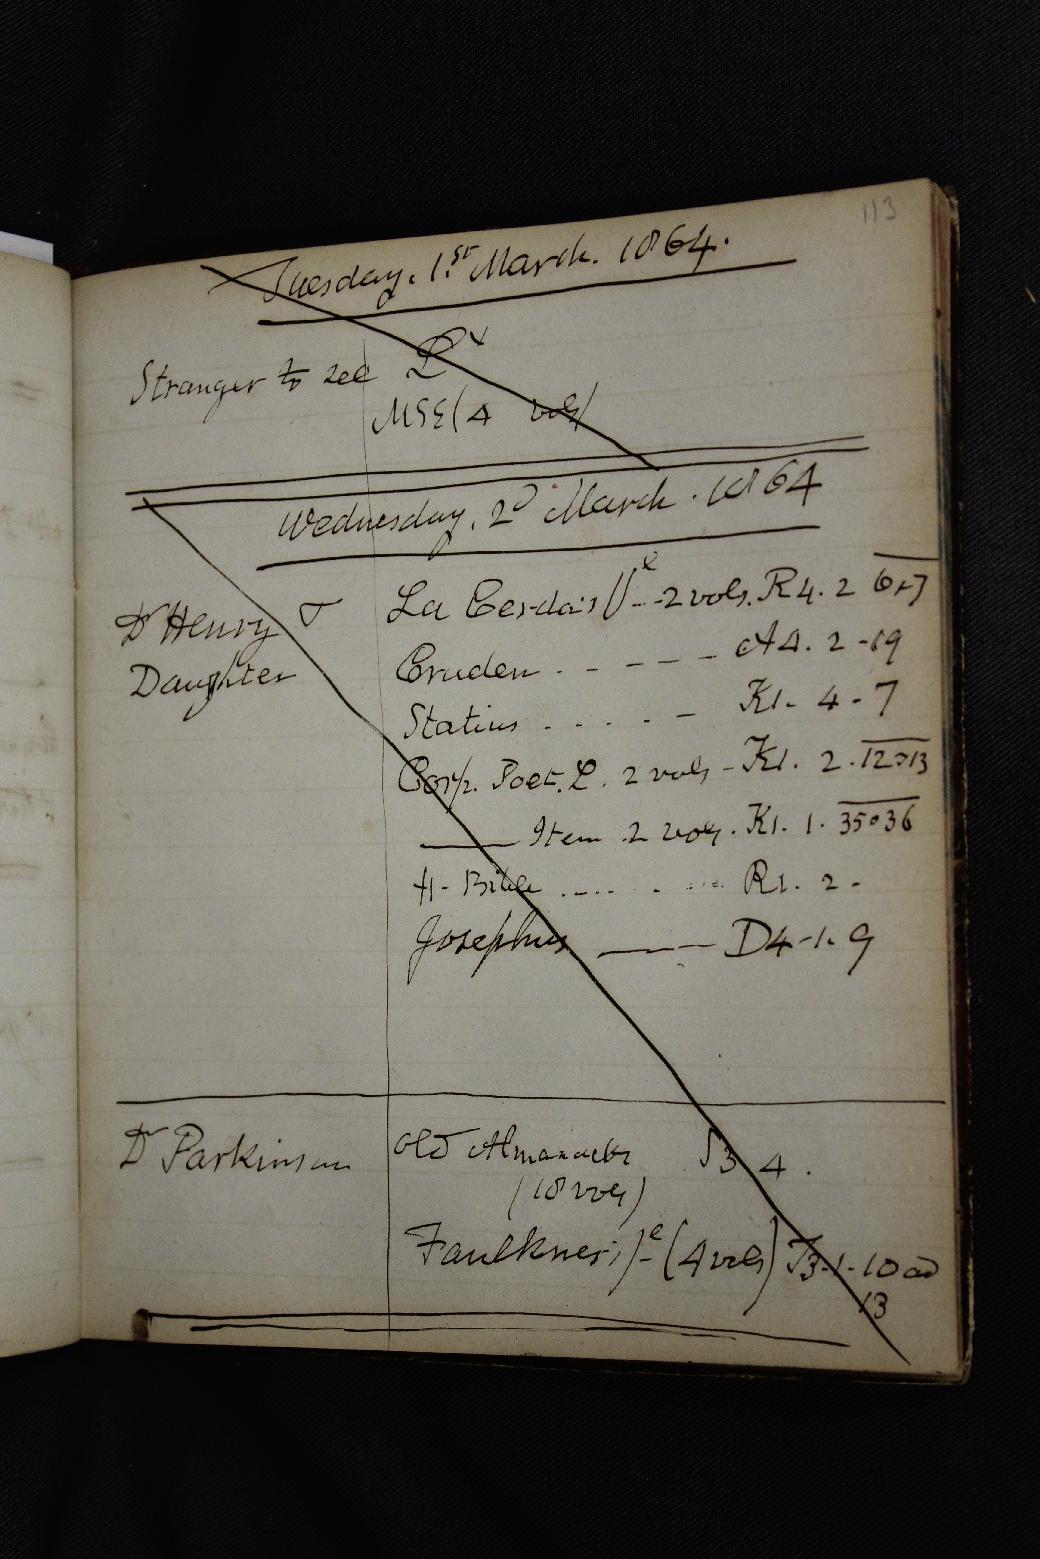 113
Tuesday. 1st March. 1864.
Stranger to see
MSS (4 vols)
Wednesday. 2d March. 1864
Dr Henry & La Cerda's Ve - 2 vols. R4. 2 6+7
Daughter Cruden - - - - - A4. 2 - 19
Statius . . . . - K1. 4 - 7
Corp. Poet. L. 2 vols - K1. 2. 12 & 13
—— Item 2 vols. K1. 1. 35 & 36
H. Bible . . . . . . R1. 2 -
Josephus —— D4 - 1. 9
Dr Parkinson Old Almanacks S3 4.
(18 vols)
Faulkner's (4 vols) T3-1-10 ad
13